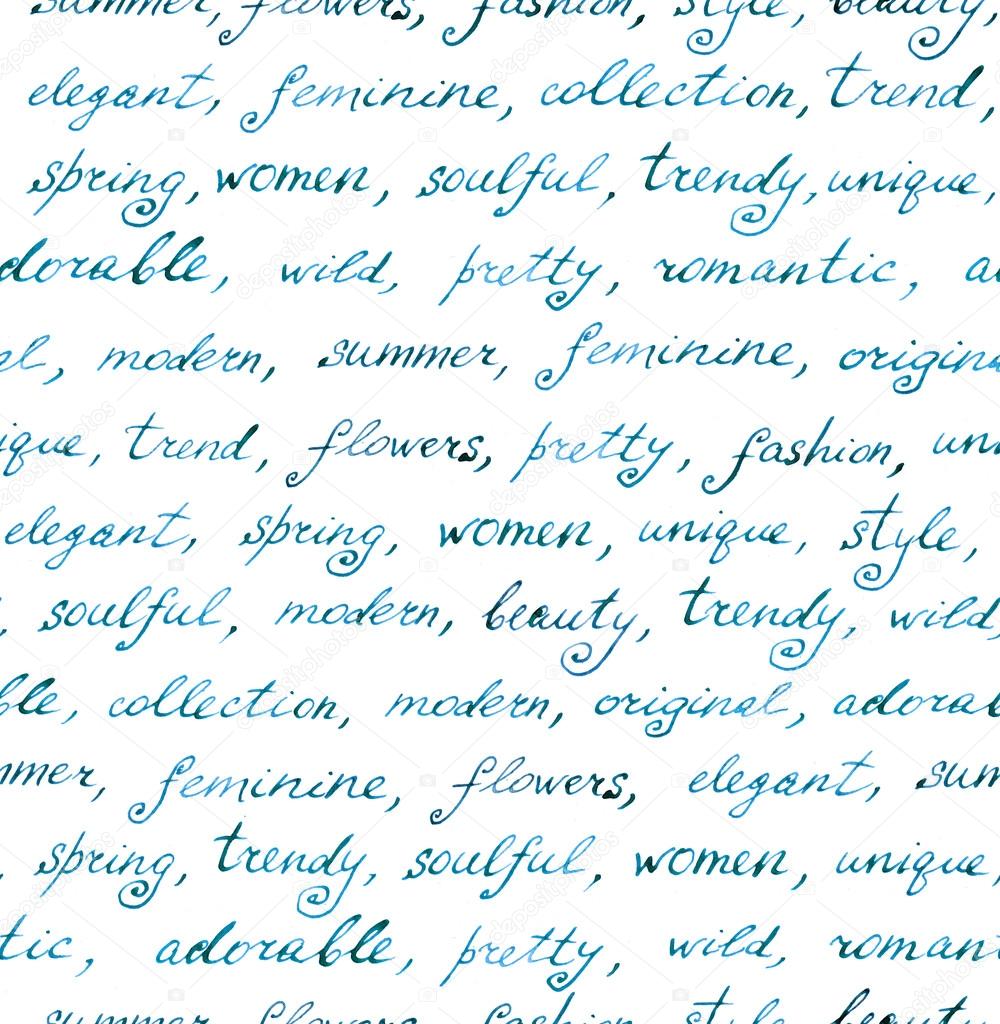 summer, flowers, fashion, style, beauty,
elegant, feminine, collection, trend,
spring, women, soulful, trendy, unique,
dorable, wild, pretty, romantic, a
al, modern, summer, feminine, origina
ique, trend, flowers, pretty, fashion, uni
elegant, spring, women, unique, style,
, soulful, modern, beauty, trendy, wild,
ble, collection, modern, original, adorab
mmer, feminine, flowers, elegant, sum
, spring, trendy, soulful, women, unique,
tic, adorable, pretty, wild, romant
summer, flowers, fashion, style, beauty